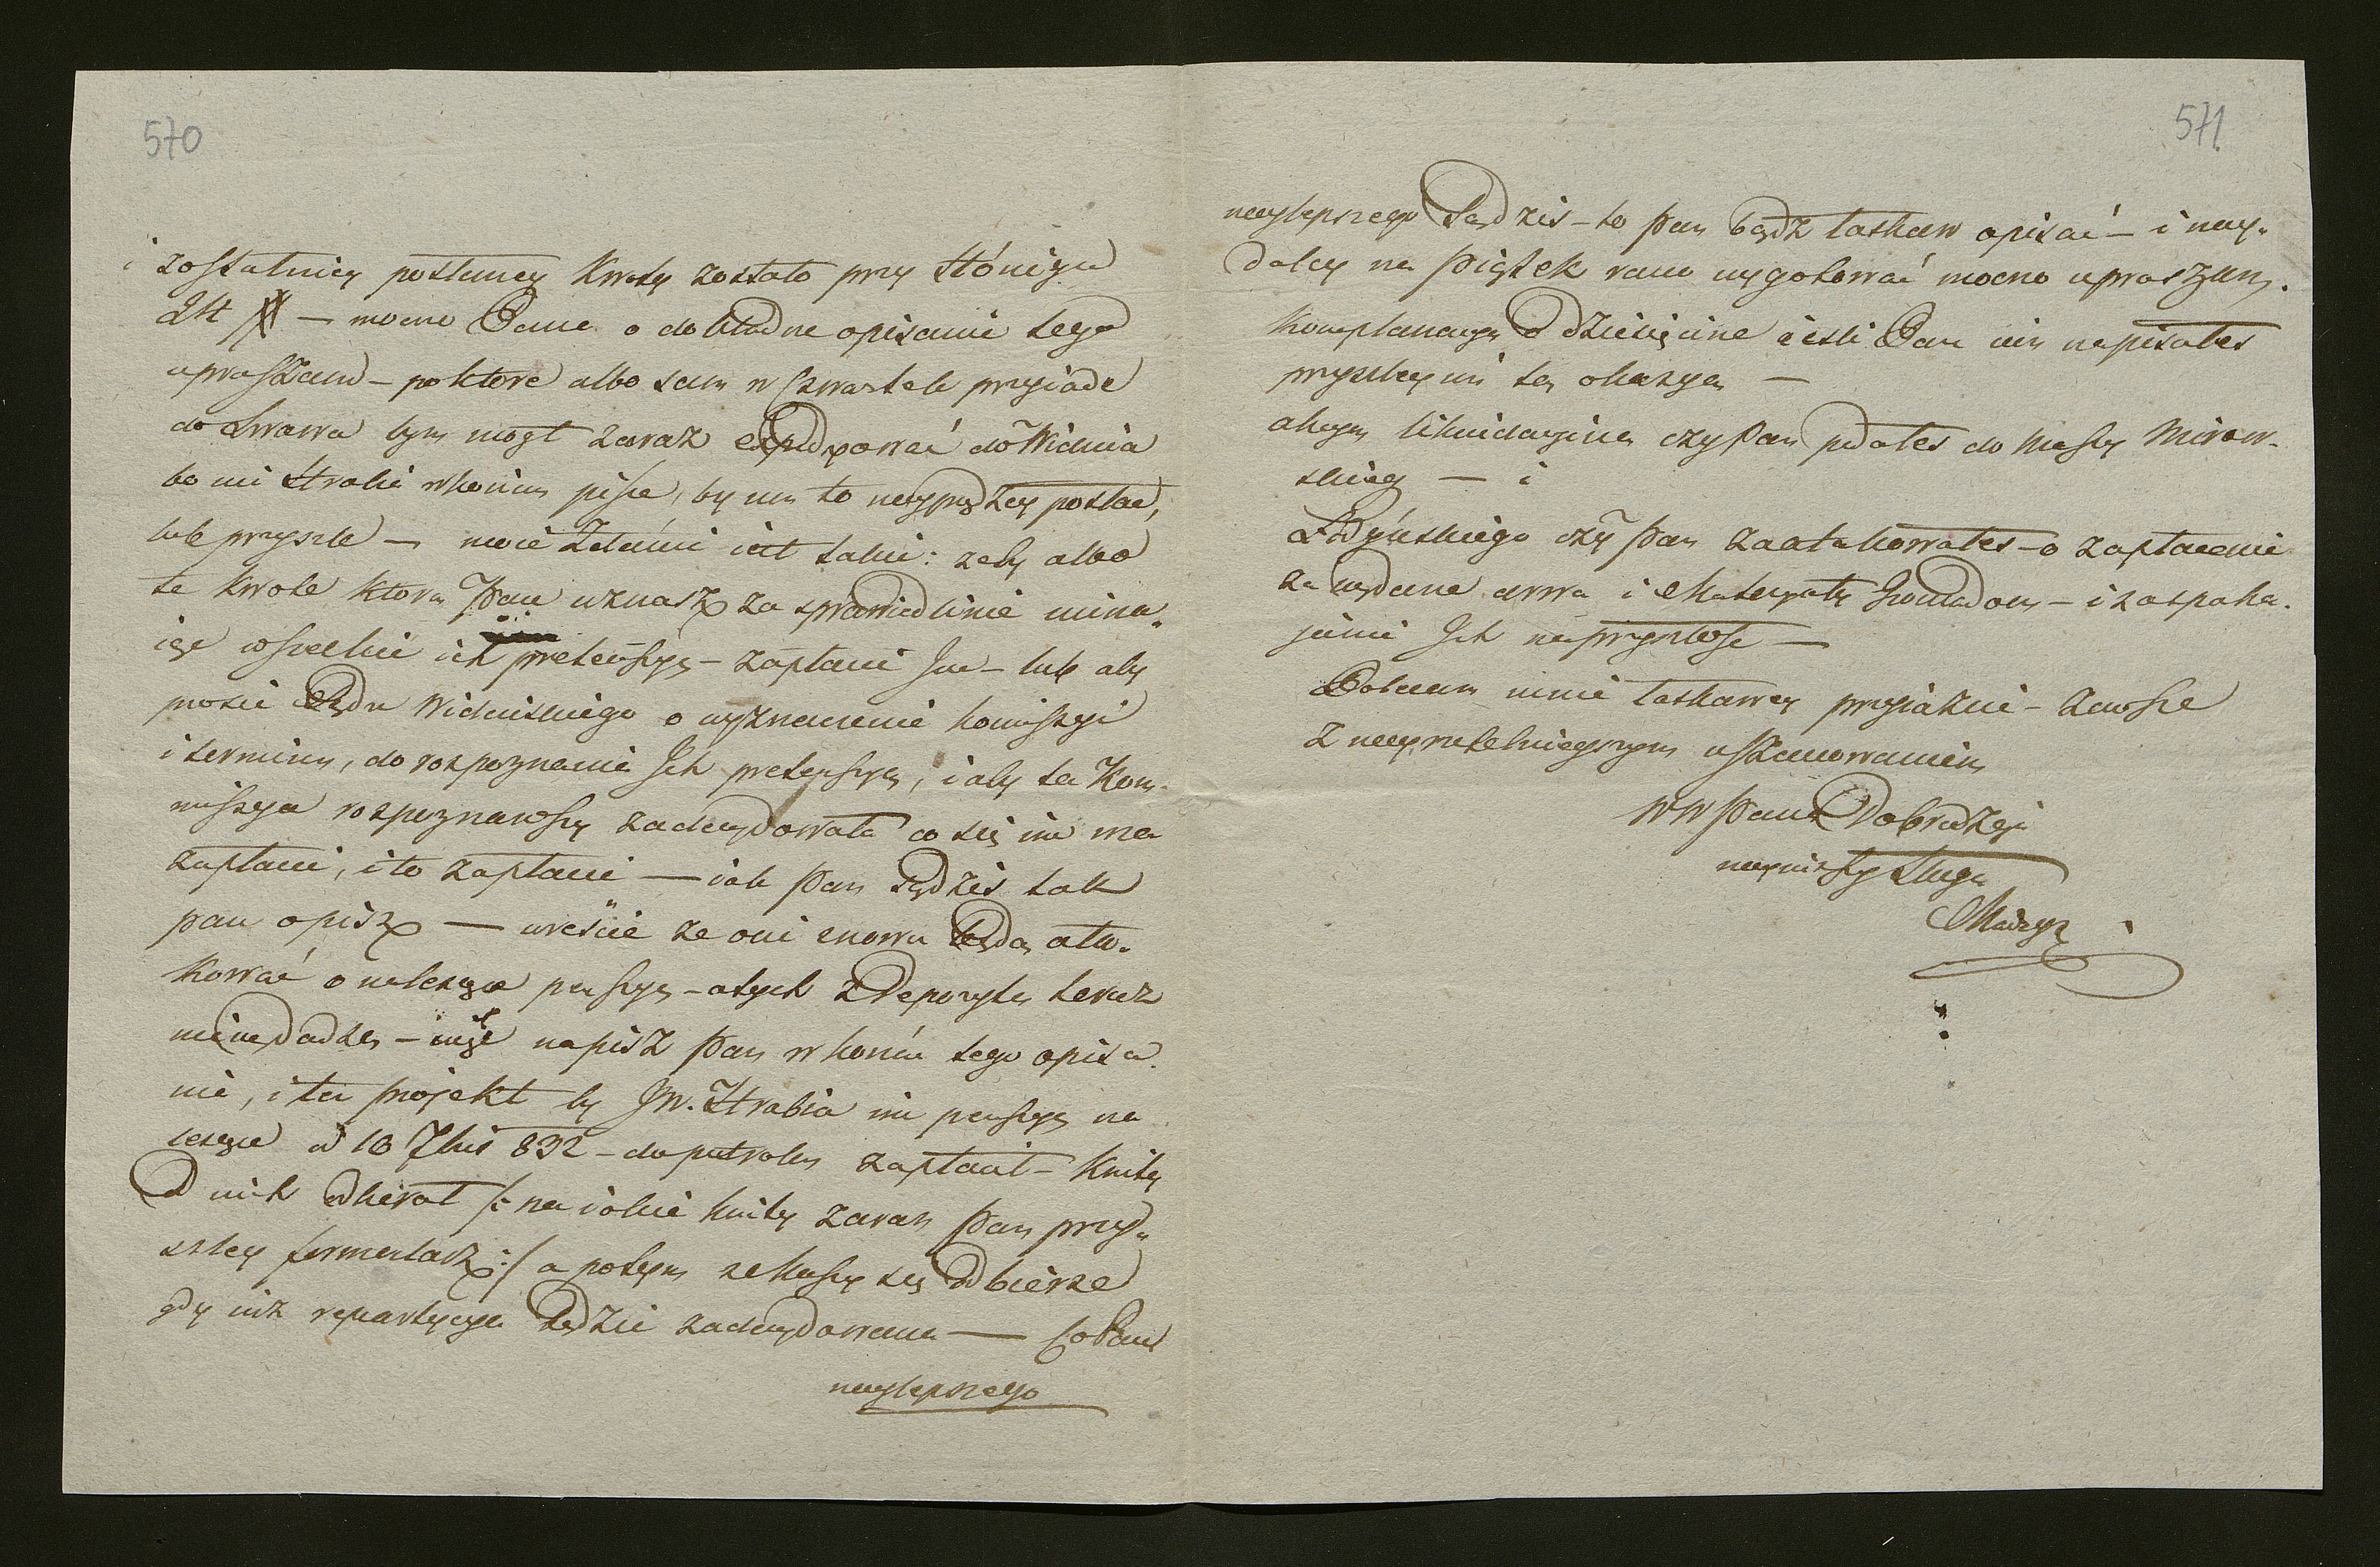 570
i zostatniey posłaney Kwoty zostało przy Hónigu
24 # — mocno Pana o dokładne opisanie tego
upraszam – poktóre albo sam w Czwartek przyiadę
do Lwowa bym mógł zaraz expedyować do Widnia
bo mi Hrabia w końcu pisze, by mu to nayprędzey posłać,
lub przyszle — moie Zdanie iest takie: żeby albo
te kwotę którą Pan uznasz za sprawiedlinie mina„
iąc wszelkie ich pretensye – zapłacić Im – lub aby
prosić Sądu Widenskiego o wyznaczenie komiszyi
i terminu, do rozpoznania Ich pretensyi, i aby ta Kom„
miszya rozpoznawszy zadecydowała co się im ma
zapłacić, i to zapłacić — iak Pan sądzis tak
pan opisz — wreście że oni znowu będą ata„
kować o należące pensye – a tych z Depozytu teraz
nie wydadzą – więc napisz Pan w końcu tego opisa„
nia, i ten projekt by JW. Hrabia im pensye na
leżące od 10 7bris 832 – do patrolu zapłacił – kwity
od nich odbierał /: na iakie kwity zaraz Pan przy„
szley formularz :/ a potym z Massy ses odbierze
gdy iuż repartycya będzie zadecydowana — Co Pan
naylepszego
571
naylepszego Sądzis – to Pan bądź łaskaw opisać – i nay„
daley na Piątek rano wygotować mocno upraszam.
Komplanacyę o dziesięcine ieśli Pan iuż napisałes
przyszley mi tą okazyą —
akcyę likwidacyiną czy Pan podałes do Massy Mirow„
skiey — i
czy Pan zaatakowałes – o zapłacenie
za wydane drwa i Materyały Gromadom – i zaspoko„
jenie Ich na przyszłość —
Polecam mnie łaskawey przyiaźni – zawsze
z nayrzetelnieyszym uszanowaniem
WW Pana Dobrodzeja
nayniższy Sługa